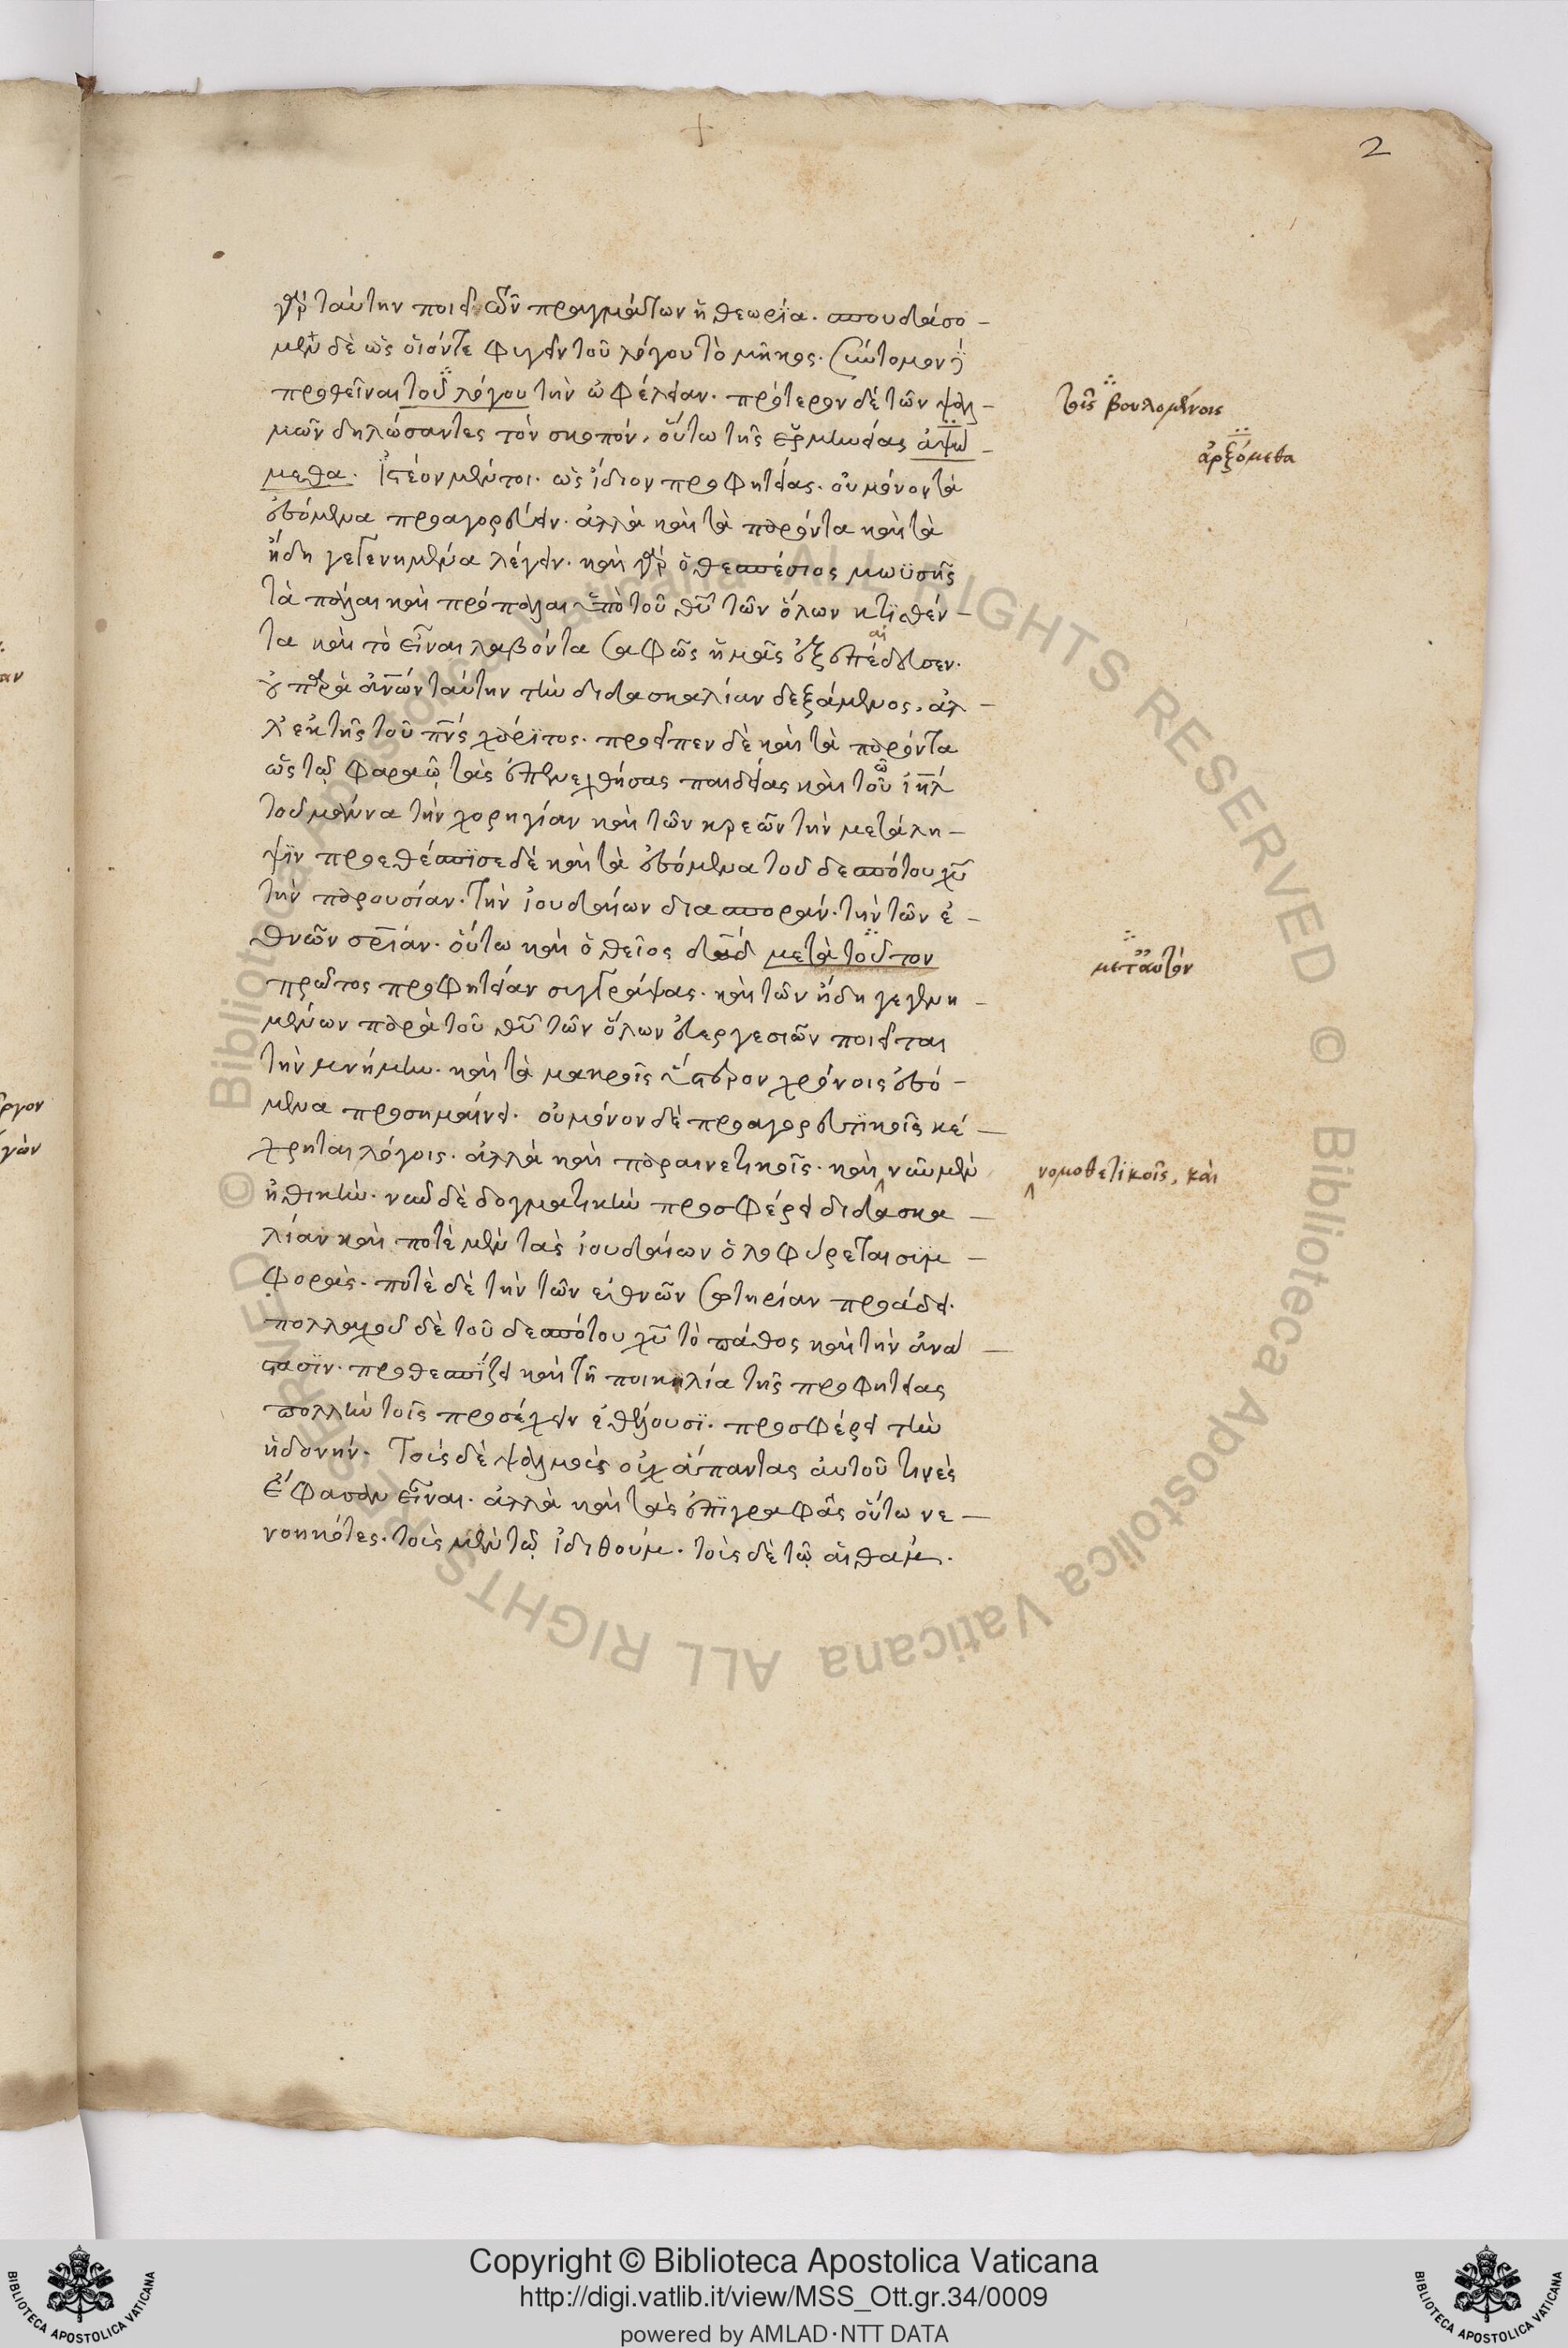 2
γὰρ ταύτην ποιεῖ τῶν πραγμάτων ἡ θεωρία. σπουδάσο-
μεν δὲ ὡς οἷόντε φυγεῖν τοῦ λόγου τὸ μῆκος. σύντομον γὰρ
προθεῖναι τοῦ λόγου τὴν ὠφέλειαν. πρότερον δὲ τῶν ψαλ-
μῶν δηλώσαντες τὸν σκοπόν, οὕτω τῆς ἑρμηνείας ἁψώ-
μεθα. Ἰστέον μέντοι. ὡς ἴδιον προφητείας. οὐ μόνον τὰ
ἐσόμενα προαγορεύειν. ἀλλὰ καὶ τὰ παρόντα καὶ τὰ
ἤδη γεγενημένα λέγειν. καὶ γὰρ ὁ θεσπέσιος μωϋσῆς
τὰ πάλαι καὶ πρόπαλαι ὑπὸ τοῦ θῡ τῶν ὅλων κτισθέν-
τα καὶ τὸ εἶναι λαβόντα σαφῶς ἡμᾶς ἐξεπαίδευσεν.
οὐ παρὰ ἀνων ταύτην τὴν διδασκαλίαν δεξάμενος, ἀλ-
λ' ἐκ τῆς τοῦ πνς χάριτος. προεῖπεν δὲ καὶ τὰ παρόντα
ὡς τῷ φαραῷ τὰς ἐπενεχθήσας παιδείας καὶ τῷ ιηλ
τοῦ μάννα τὴν χορηγίαν καὶ τῶν κρεῶν τὴν μετάλη-
ψιν προεθέσπισε δὲ καὶ τὰ ἐσόμενα τοῦ δεσπότου χῡ
τὴν παρουσίαν. τὴν ἰουδαίων διασποράν. τὴν τῶν ἐ-
θνῶν σρίαν. οὕτω καὶ ὁ θεῖος δαδ μετὰ τοῦτον
πρῶτος προφητείαν συγγράψας. καὶ τῶν ἤδη γεγενη-
μένων παρὰ τοῦ θῡ τῶν ὅλων εὐεργεσιῶν ποιεῖται
τὴν μνήμην. καὶ τὰ μακροῖς ὕστερον χρόνοις ἐσό-
μενα προσημαίνει. οὐ μόνον δὲ προαγορευτικοῖς κέ-
χρηται λόγοις. ἀλλὰ καὶ παραινετικοῖς. καὶ νῦν μὲν
ἠθικὴν. νῦν δὲ δογματικὴν προσφέρει διδασκα-
λίαν καὶ ποτὲ μὲν τὰς ἰουδαίων ὀλοφύρεται συμ-
φοράς. ποτὲ δὲ τὴν τῶν ἐθνῶν σωτηρίαν προάδει.
πολλαχοῦ δὲ τοῦ δεσπότου χῡ τὸ πάθος καὶ τὴν ἀνά-
στασιν. προθεσπίζει καὶ τῇ ποικιλία τῆς προφητείας
πολλὴν τοῖς προσέχειν ἐθέλουσι. προσφέρει τὴν
ἡδονήν. Τοὺς δὲ ψαλμοὺς οὐχ ἅπαντας αὐτοῦ τινὲς
ἔφασαν εἶναι. ἀλλὰ καὶ τὰς ἐπιγραφὰς οὕτω νε-
νοηκότες. τοὺς μὲν τῷ ἰδιθούμ. τοὺς δὲ τῷ αἰθάμ.
τοῖς βουλομένοις
ἀρξόμεθα
μετ' αὐτὸν
νομοθετικοῖς, καὶ
ργον
αν
γὼν
Copyright © Biblioteca Apostolica Vaticana
http://digi.vatlib.it/view/MSS_Ott.gr.34/0009
powered by AMLAD·NTT DATA
BIBLIOTECA APOSTOLICA VATICANA
BIBLIOTECA APOSTOLICA VATICANA
© Biblioteca Apostolica Vaticana ALL RIGHTS RESERVED © Biblioteca Apostolica Vaticana ALL RIGHTS RESERVED